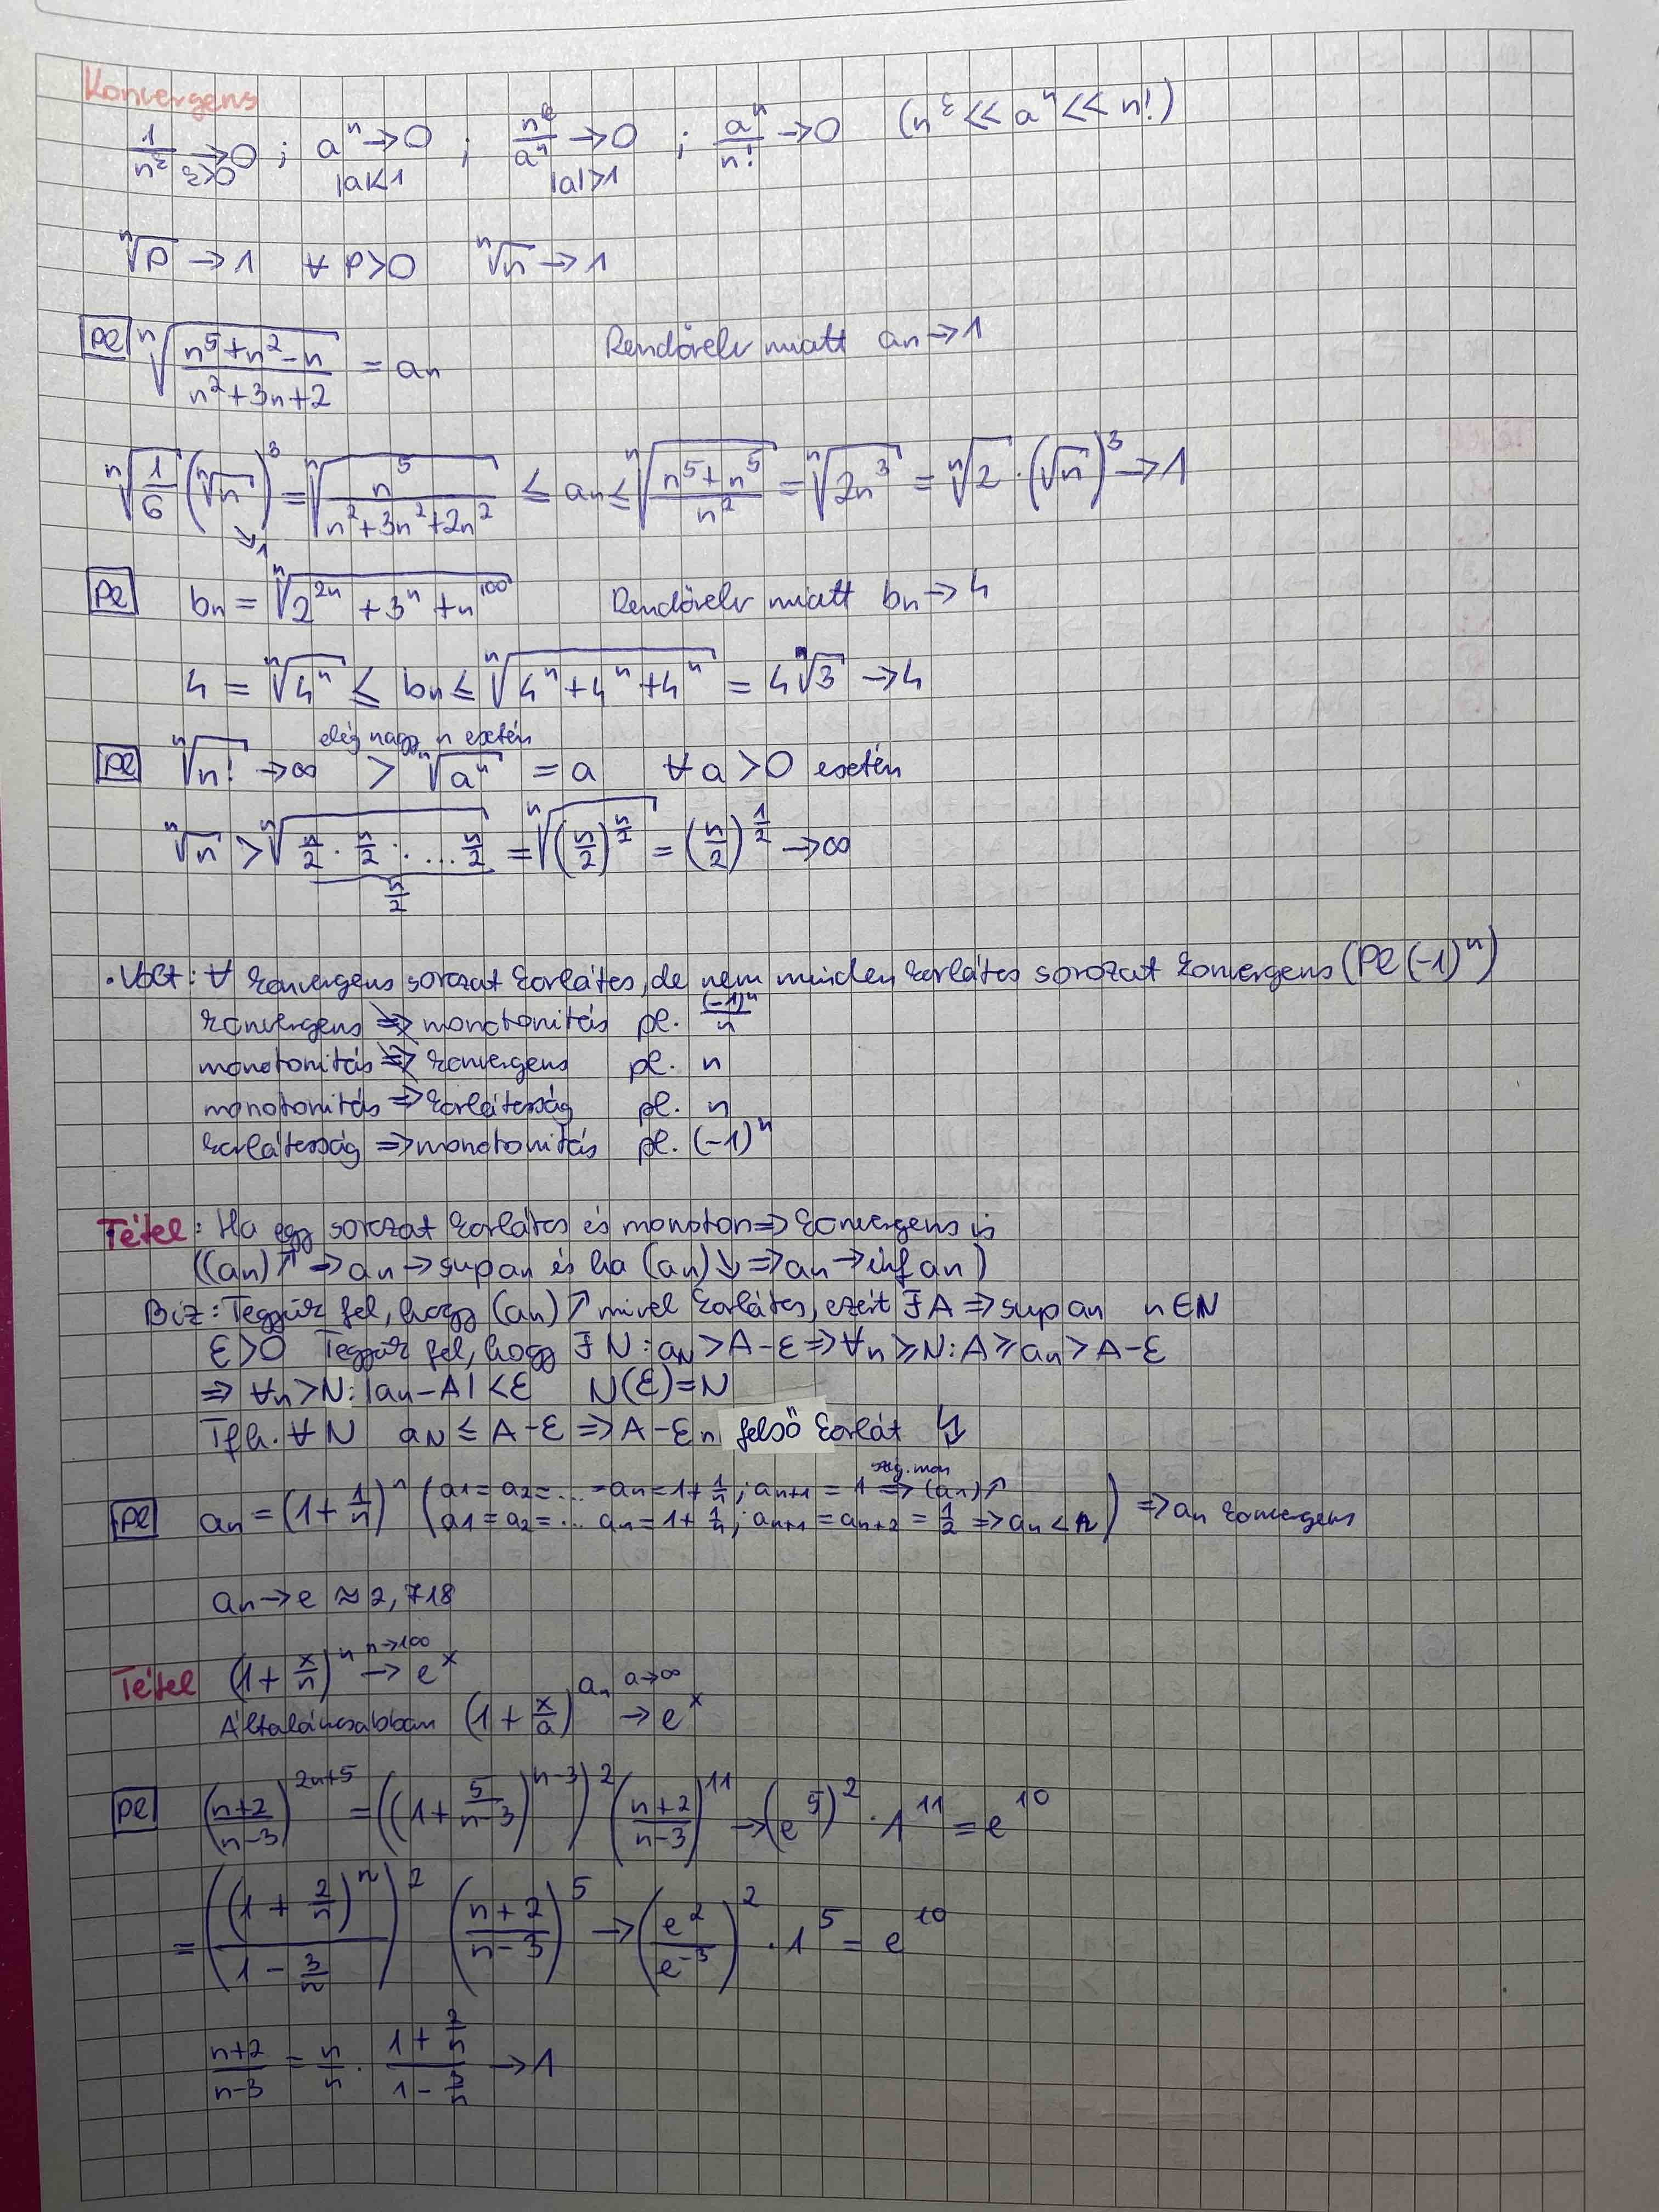 Konvergens
1/n^ε → 0 ε>0 ; a^n → 0 |a|<1 ; n^k/a^n → 0 |a|>1 ; a^n/n! → 0 (n^ε << a^n << n!)
ⁿ√p → 1 ∀ p>0 ⁿ√n → 1
Pl ⁿ√((n^5+n^2-n)/(n^2+3n+2)) = an Rendőrelv miatt an → 1
ⁿ√(1/6) (ⁿ√n)^3 = ⁿ√(n^5/(n^2+3n^2+2n^2)) ≤ an ≤ ⁿ√((n^5+n^5)/n^2) = ⁿ√(2n^3) = ⁿ√2 · (√n)^3 → 1
↘1
Pl bn = ⁿ√(2^2n + 3^n + n^100) Rendőrelv miatt bn → 4
4 = ⁿ√(4^n) ≤ bn ≤ ⁿ√(4^n + 4^n + 4^n) = 4 ⁿ√3 → 4
elég nagy n esetén
Pl ⁿ√n! → ∞ > ⁿ√(a^n) = a ∀ a > 0 esetén
ⁿ√n > ⁿ√(n/2 · n/2 · ... n/2) = ⁿ√((n/2)^(n/2)) = (n/2)^(1/2) → ∞
n/2
• Volt: ∀ konvergens sorozat korlátos, de nem minden korlátos sorozat konvergens (Pl (-1)^n)
konvergens ⇏ monotonitás pl. (-1)^n/n
monotonitás ⇏ konvergens pl. n
monotonitás ⇒ korlátosság pl. n
korlátosság ⇒ monotonitás pl. (-1)^n
Tétel: Ha egy sorozat korlátos és monoton ⇒ konvergens is
((an)↗ ⇒ an → sup an és ha (an)↘ ⇒ an → inf an)
Biz: Tegyük fel, hogy (an)↗ mivel korlátos, ezért ∃ A ⇒ sup an n∈N
ε>0 Tegyük fel, hogy ∃ N: aN > A-ε ⇒ ∀n ≥ N: A ≥ an > A-ε
⇒ ∀n > N: |an - A| < ε N(ε) = N
Tfh. ∀ N aN ≤ A-ε ⇒ A-εn felső korlát ↯
Pl an = (1+1/n)^n (a1 = a2 = ... = an = 1+1/n ; an+1 = 1 ⇒ (an)↗
a1 = a2 = ... an = 1+1/n ; an+1 = an+2 = 1/2 ⇒ an < 4) ⇒ an konvergens
an → e ≈ 2,718
Tétel (1+x/n)^n n→100 → e^x
Általánosabban (1+x/a)^an a→∞ → e^x
Pl ((n+2)/(n-3))^(2n+5) = ((1+5/(n-3))^(n-3))^2 ((n+2)/(n-3))^11 → (e^5)^2 · 1^11 = e^10
= ((1+2/n)^n/(1-3/n))^2 ((n+2)/(n-3))^5 → (e^2/e^-3)^2 · 1^5 = e^10
(n+2)/(n-3) = n/n · (1+2/n)/(1-3/n) → 1